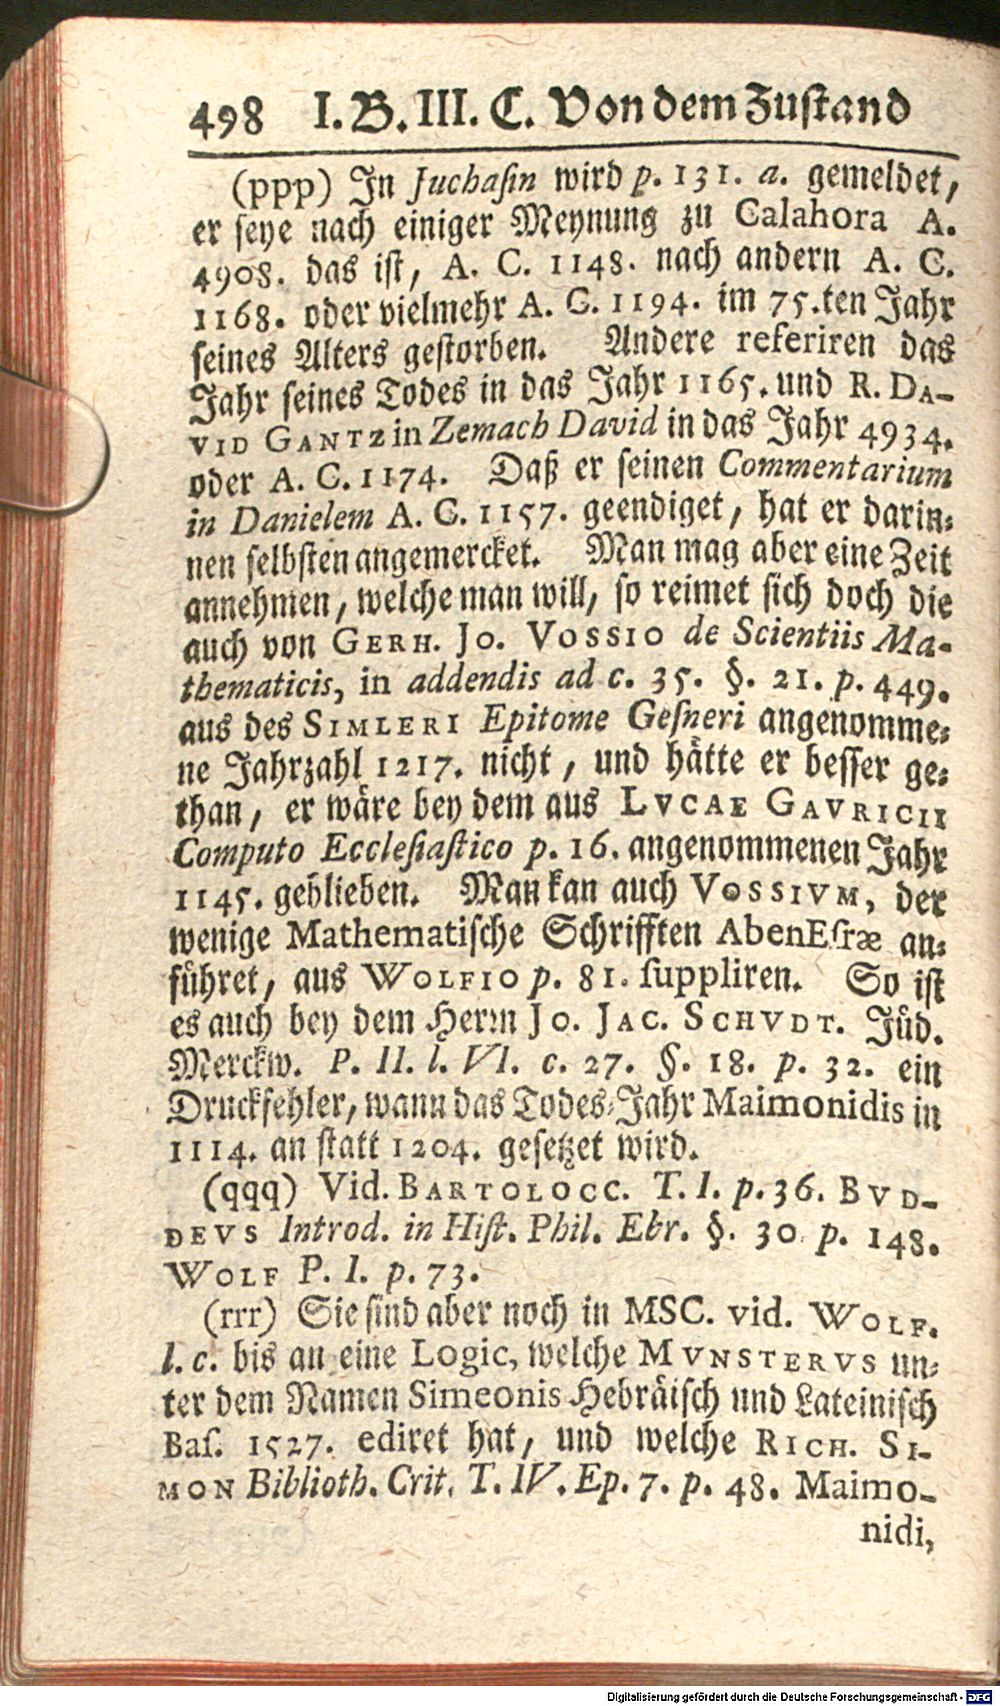 498 I. B. III. C. Von dem Zustand
(ppp) In Juchasin wird p. 131. a. gemeldet,
er seye nach einiger Meynung zu Calahora A.
4908. das ist, A. C. 1148. nach andern A. C.
1168. oder vielmehr A. C. 1194. im 75.ten Jahr
seines Alters gestorben. Andere referiren das
Jahr seines Todes in das Jahr 1165. und R. DA-
VID GANTZ in Zemach David in das Jahr 4934.
oder A. C. 1174. Daß er seinen Commentarium
in Danielem A. C. 1157. geendiget, hat er darin-
nen selbsten angemercket. Man mag aber eine Zeit
annehmen, welche man will, so reimet sich doch die
auch von GERH. JO. VOSSIO de Scientiis Ma-
thematicis, in addendis ad c. 35. §. 21. p. 449.
aus des SIMLERI Epitome Gesneri angenomme-
ne Jahrzahl 1217. nicht, und hätte er besser ge-
than, er wäre bey dem aus LVCAE GAVRICII
Computo Ecclesiastico p. 16. angenommenen Jahr
1145. geblieben. Man kan auch VOSSIVM, der
wenige Mathematische Schrifften AbenEsræ an-
führet, aus WOLFIO p. 81. suppliren. So ist
es auch bey dem Herrn JO. JAC. SCHVDT. Jüd.
Merckw. P. II. l. VI. c. 27. §. 18. p. 32. ein
Druckfehler, wann das Todes-Jahr Maimonidis in
1114. an statt 1204. gesetzet wird.
(qqq) Vid. BARTOLOCC. T. I. p. 36. BVD-
DEVS Introd. in Hist. Phil. Ebr. §. 30. p. 148.
WOLF P. I. p. 73.
(rrr) Sie sind aber noch in MSC. vid. WOLF.
l. c. bis an eine Logic, welche MVNSTERVS un-
ter dem Namen Simeonis Hebräisch und Lateinisch
Bas. 1527. ediret hat, und welche RICH. SI-
MON Biblioth. Crit. T. IV. Ep. 7. p. 48. Maimo-
nidi,
Digitalisierung gefördert durch die Deutsche Forschungsgemeinschaft - DFG